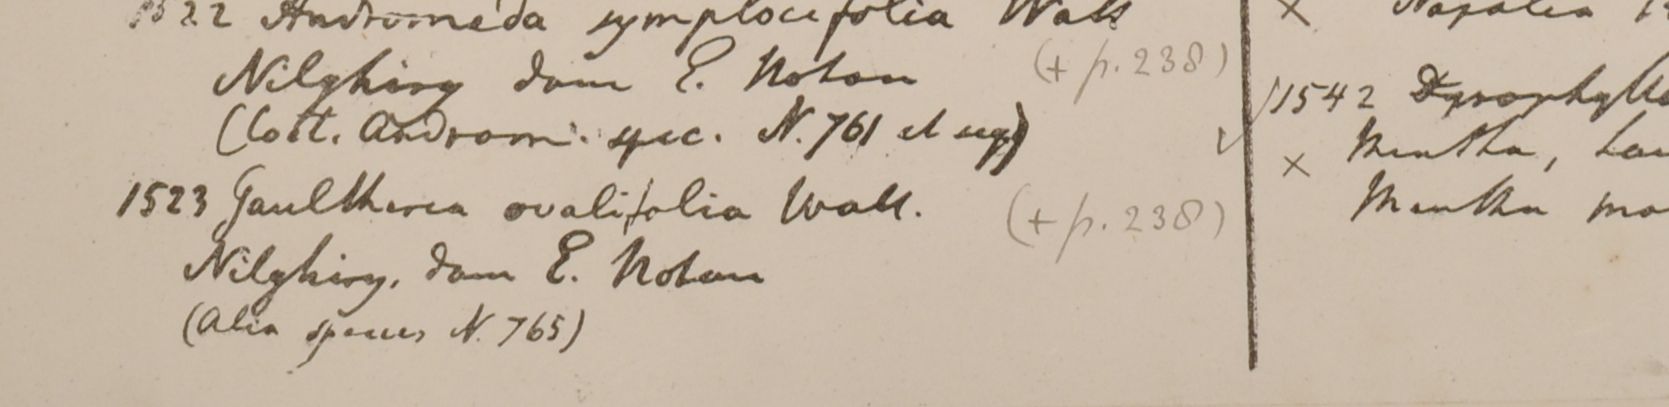 1522 Andromeda symplocifolia Wall
Nilghiry dom E. Noton (+ p. 238)
(Coll. Androm. spec. N. 761 et seq)
1523 Gaultheria ovalifolia Wall. (+ p. 238)
Nilghiry. dom E. Noton
(Alia species N. 765)
×
1542 Dysophylla
× Mentha,
Mentha